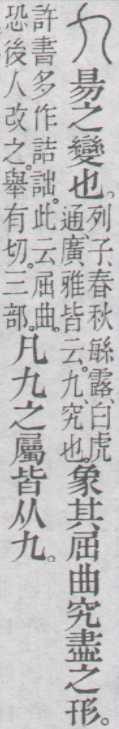 九昜之變也。列子、春秋緐露、白虎通、廣雅皆云。九、究也。象其屈曲究盡之形。
許書多作詰詘。此云屈曲。恐後人改之。舉有切。三部。凡九之屬皆从九。